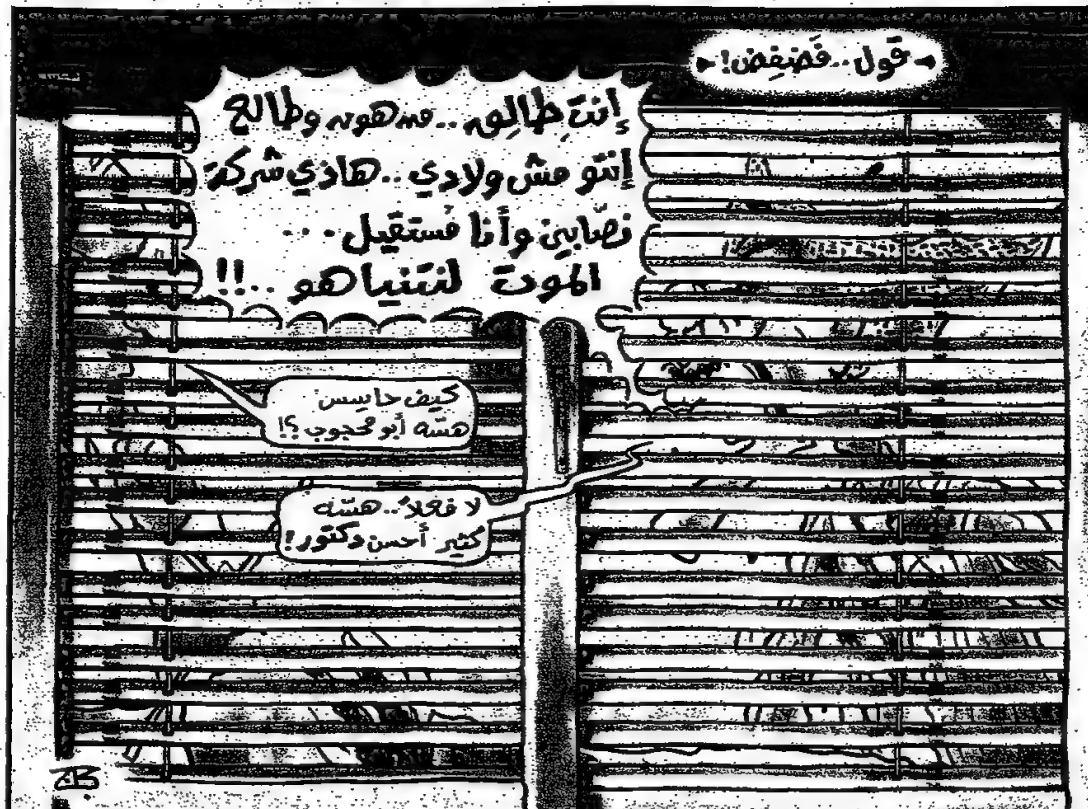 قول..فَضفِض!
إنتِ طالِق..من هون وطالع
إنتو مش ولادي..هاذي شركة
نصّابين وأنا مُستقيل...
الموت لنتنياهو..!!
كيف حاسس
هسّه أبو محجوب؟!
لا فعلاً..هسّه
كتير أحسن دكتور!